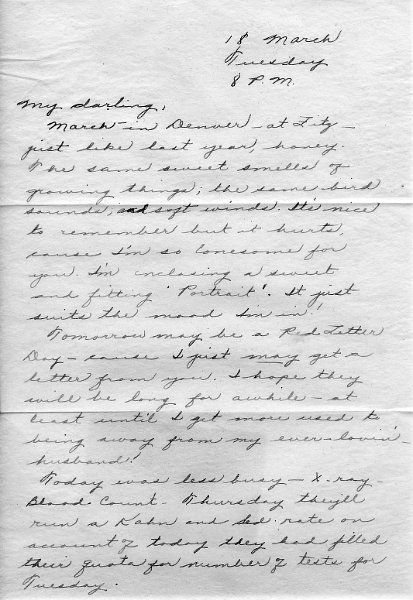 18 March
Tuesday
8 P.M.
My darling,
March - in Denver - at Fitz -
just like last year, honey.
The same sweet smells of
growing things; the same bird
sounds, and soft winds. It's nice
to remember but it hurts,
cause I'm so lonesome for
you. I'm inclosing a sweet
and fitting 'Portrait'. It just
suits the mood I'm in!
Tomorrow may be a Red Letter
Day - cause I just may get a
letter from you. I hope they
will be long for awhile - at
least until I get more used to
being away from my ever-lovin'
husband!
Today was less busy - X-ray -
Blood Count. Thursday they'll
run a Kahn and Sed. rate on
account of today they had filled
their quota for number of tests for
Tuesday.